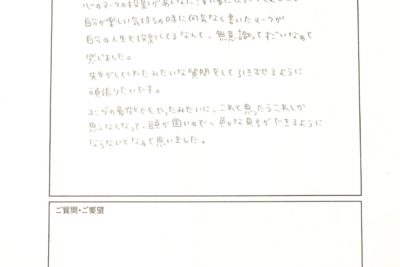 心のマークの投影があんなに
自分が楽しい気持ちの時に何気なく書いたマークが
自分の人生と投影してるなんて、無意識ってすごいなぁって
感じました。
先生がしてくれたみたいな質問をして引き出せるように
頑張りたいです。
これって思ったらこれしか
思えなくなって、頭が固いので、色々な見方ができるように
ならないとなぁって思いました。
ご質問・ご要望